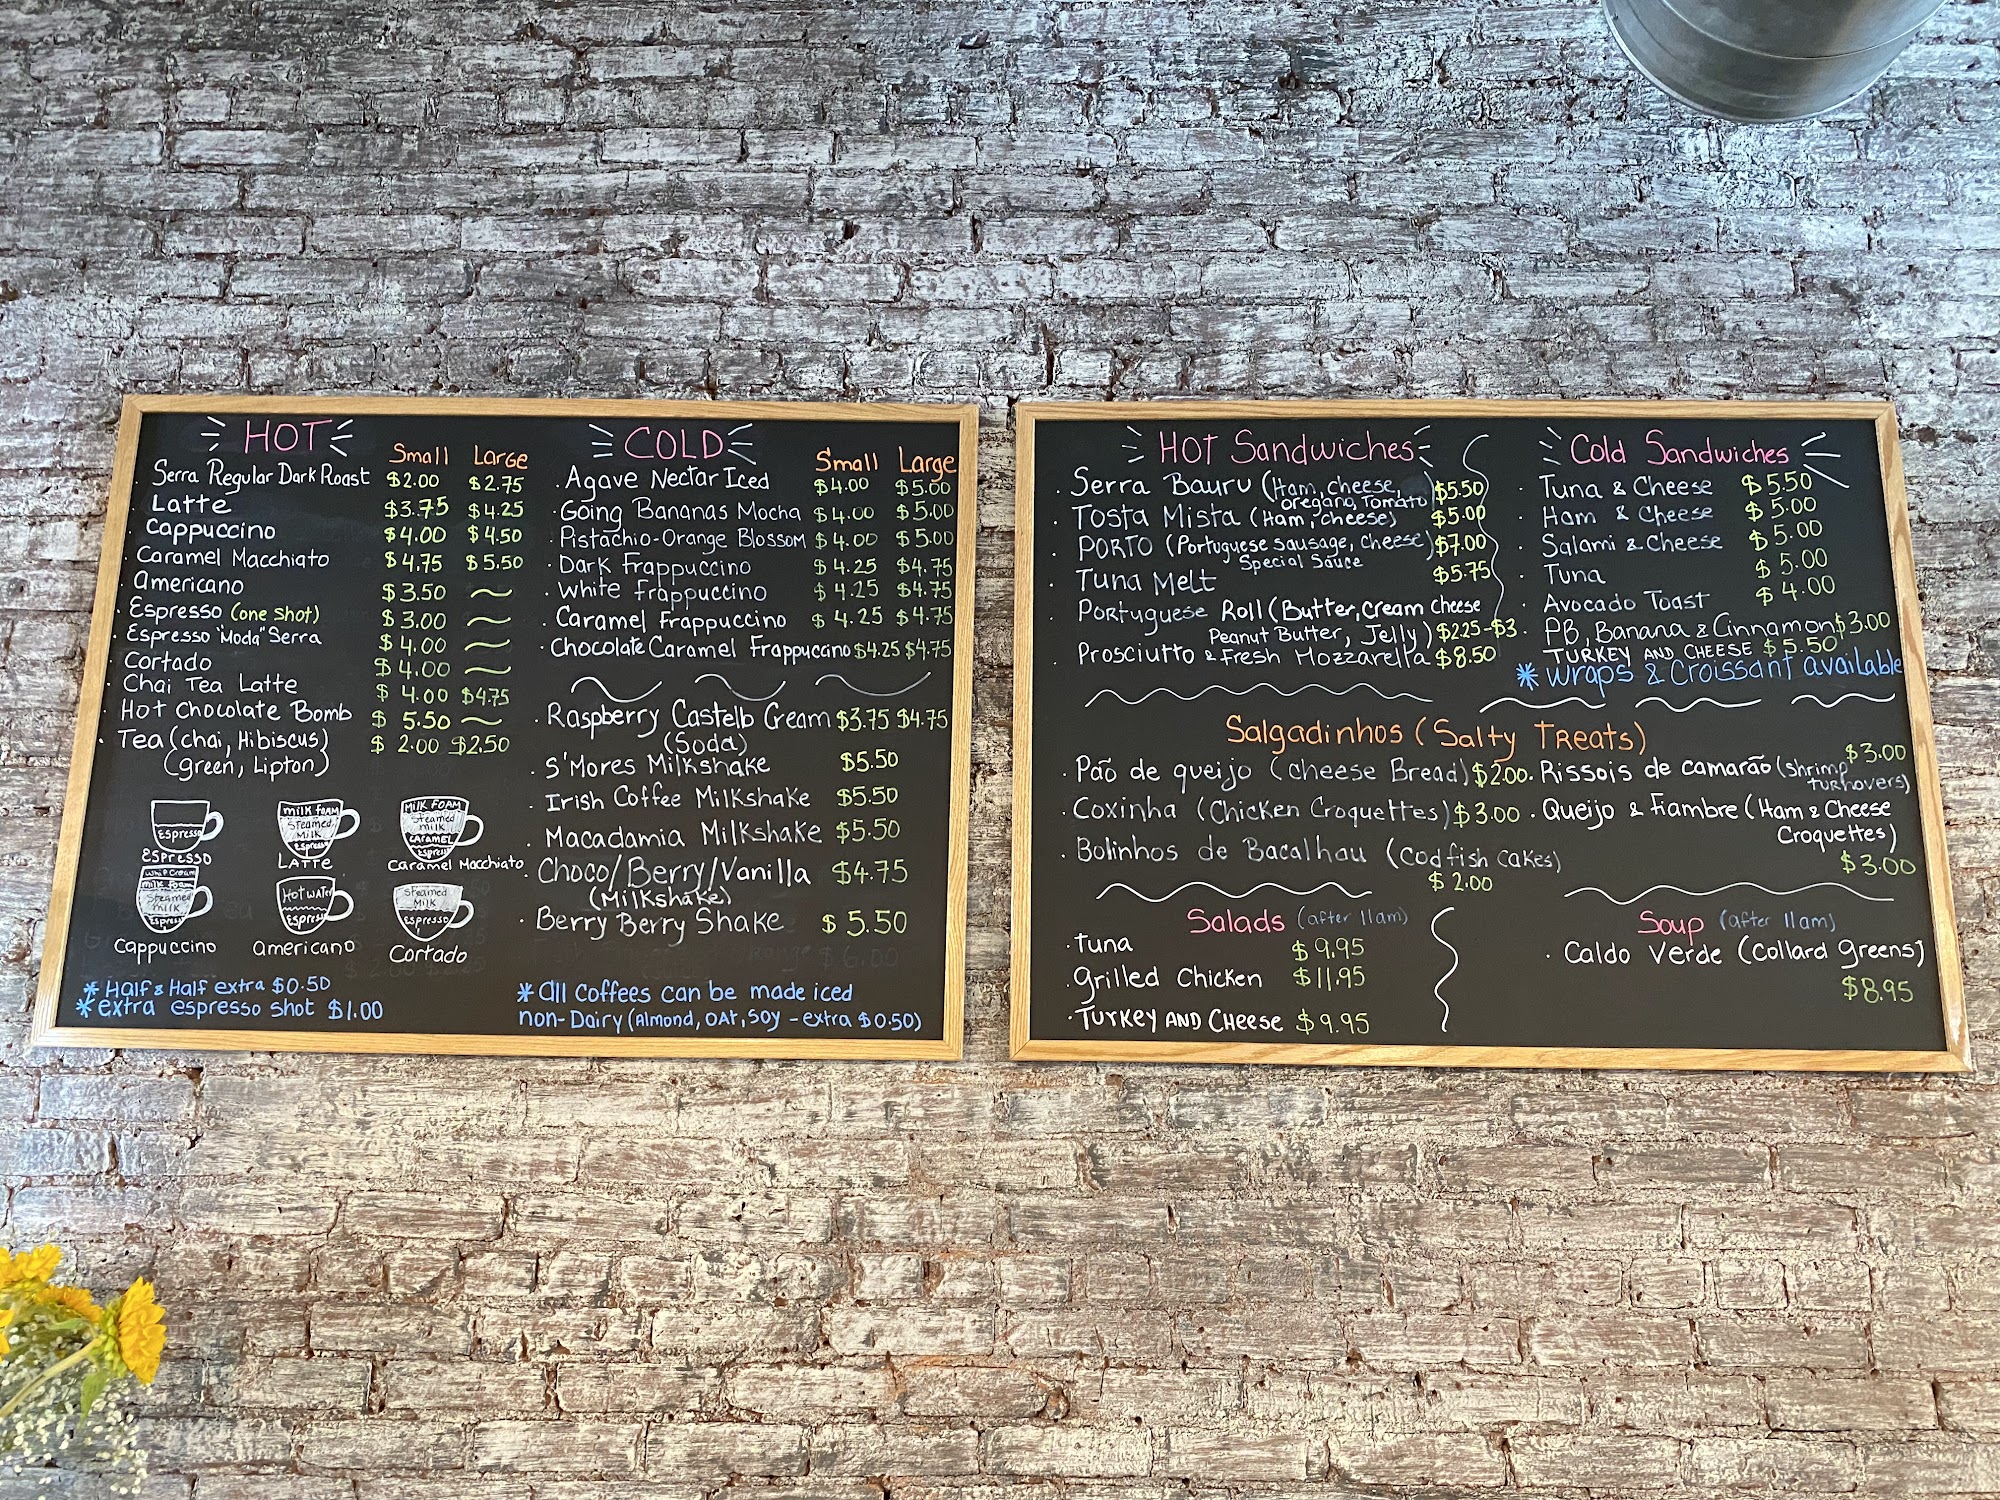 HOT
Small Large
Serra Regular Dark Roast $2.00 $2.75
Latte $3.75 $4.25
Cappuccino $4.00 $4.50
Caramel Macchiato $4.75 $5.50
Americano $3.50
Espresso (one shot) $3.00
Espresso "Moda" Serra $4.00
Cortado $4.00
Chai Tea Latte $4.00 $4.75
Hot Chocolate Bomb $5.50
Tea (chai, Hibiscus) $2.00 $2.50
(green, Lipton)
Espresso
Espresso
Milk Foam
Steamed
Milk
Espresso
Latte
Milk Foam
Steamed
milk
caramel
Espresso
Caramel Macchiato
Whip Cream
milk foam
Steamed
milk
Espresso
Cappuccino
Hot water
Espresso
americano
Steamed
Milk
Espresso
Cortado
* Half & Half extra $0.50
* extra espresso shot $1.00
COLD
Small Large
. Agave Nectar Iced $4.00 $5.00
. Going Bananas Mocha $4.00 $5.00
. Pistachio-Orange Blossom $4.00 $5.00
. Dark Frappuccino $4.25 $4.75
. White frappuccino $4.25 $4.75
. Caramel Frappuccino $4.25 $4.75
. Chocolate Caramel Frappuccino $4.25 $4.75
. Raspberry Castello Cream $3.75 $4.75
(Soda)
. S'Mores Milkshake $5.50
. Irish Coffee Milkshake $5.50
. Macadamia Milkshake $5.50
. Choco/Berry/Vanilla $4.75
(Milkshake)
. Berry Berry Shake $5.50
* all Coffees can be made iced
non-Dairy (Almond, OAT, SOY - extra $0.50)
HOT Sandwiches
. Serra Bauru (Ham, cheese, $5.50
oregano, Tomato)
. Tosta Mista (Ham, cheese) $5.00
. PORTO (Portuguese sausage, cheese) $7.00
Special Sauce
. Tuna Melt $5.75
. Portuguese Roll (Butter, Cream cheese
Peanut Butter, Jelly) $2.25-$3
. Prosciutto & Fresh Mozzarella $8.50
Cold Sandwiches
. Tuna & Cheese $5.50
. Ham & Cheese $5.00
. Salami & Cheese $5.00
. Tuna $5.00
. Avocado Toast $4.00
. PB, Banana & Cinnamon $3.00
. TURKEY AND CHEESE $5.50
* Wraps & Croissant available
Salgadinhos (Salty Treats)
. Pão de queijo (cheese Bread) $2.00
. Coxinha (Chicken Croquettes) $3.00
. Bolinhos de Bacalhau (Codfish Cakes)
$2.00
. Rissois de camarão (shrimp $3.00
turnovers)
. Queijo & fiambre (Ham & Cheese
Croquettes)
$3.00
Salads (after 11am)
. Tuna $9.95
. Grilled Chicken $11.95
. Turkey AND Cheese $9.95
Soup (after 11am)
. Caldo Verde (Collard greens)
$8.95